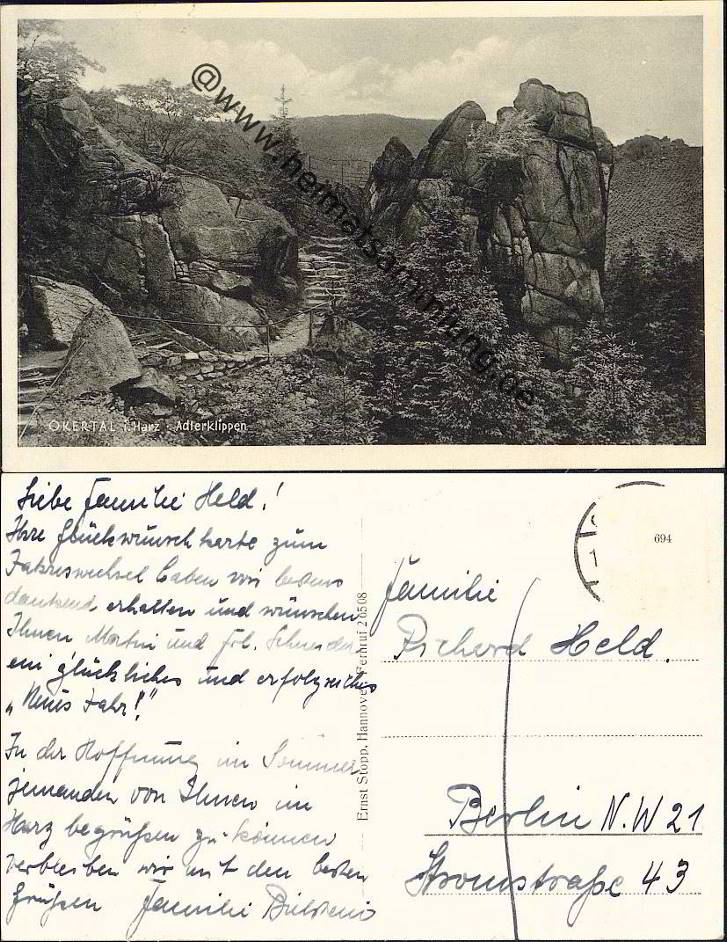 @www.heimatsammlung.de
OKERTAL i. Harz : Adlerklippen
Liebe Familie Held!
Ihre Glückwunschkarte zum
Jahreswechsel haben wir bestens
dankend erhalten und wünschen
Ihnen Martin und Frl. Schneider
ein glückliches und erfolgreiches
„Neues Jahr!"
In der Hoffnung im Sommer
jemanden von Ihnen im
Harz begrüßen zu können
verbleiben wir mit den besten
Grüßen Familie
Ernst Stopp, Hannover, Fernruf 20508
694
Familie
Richard Held.
Berlin N.W 21
Stromstraße 43